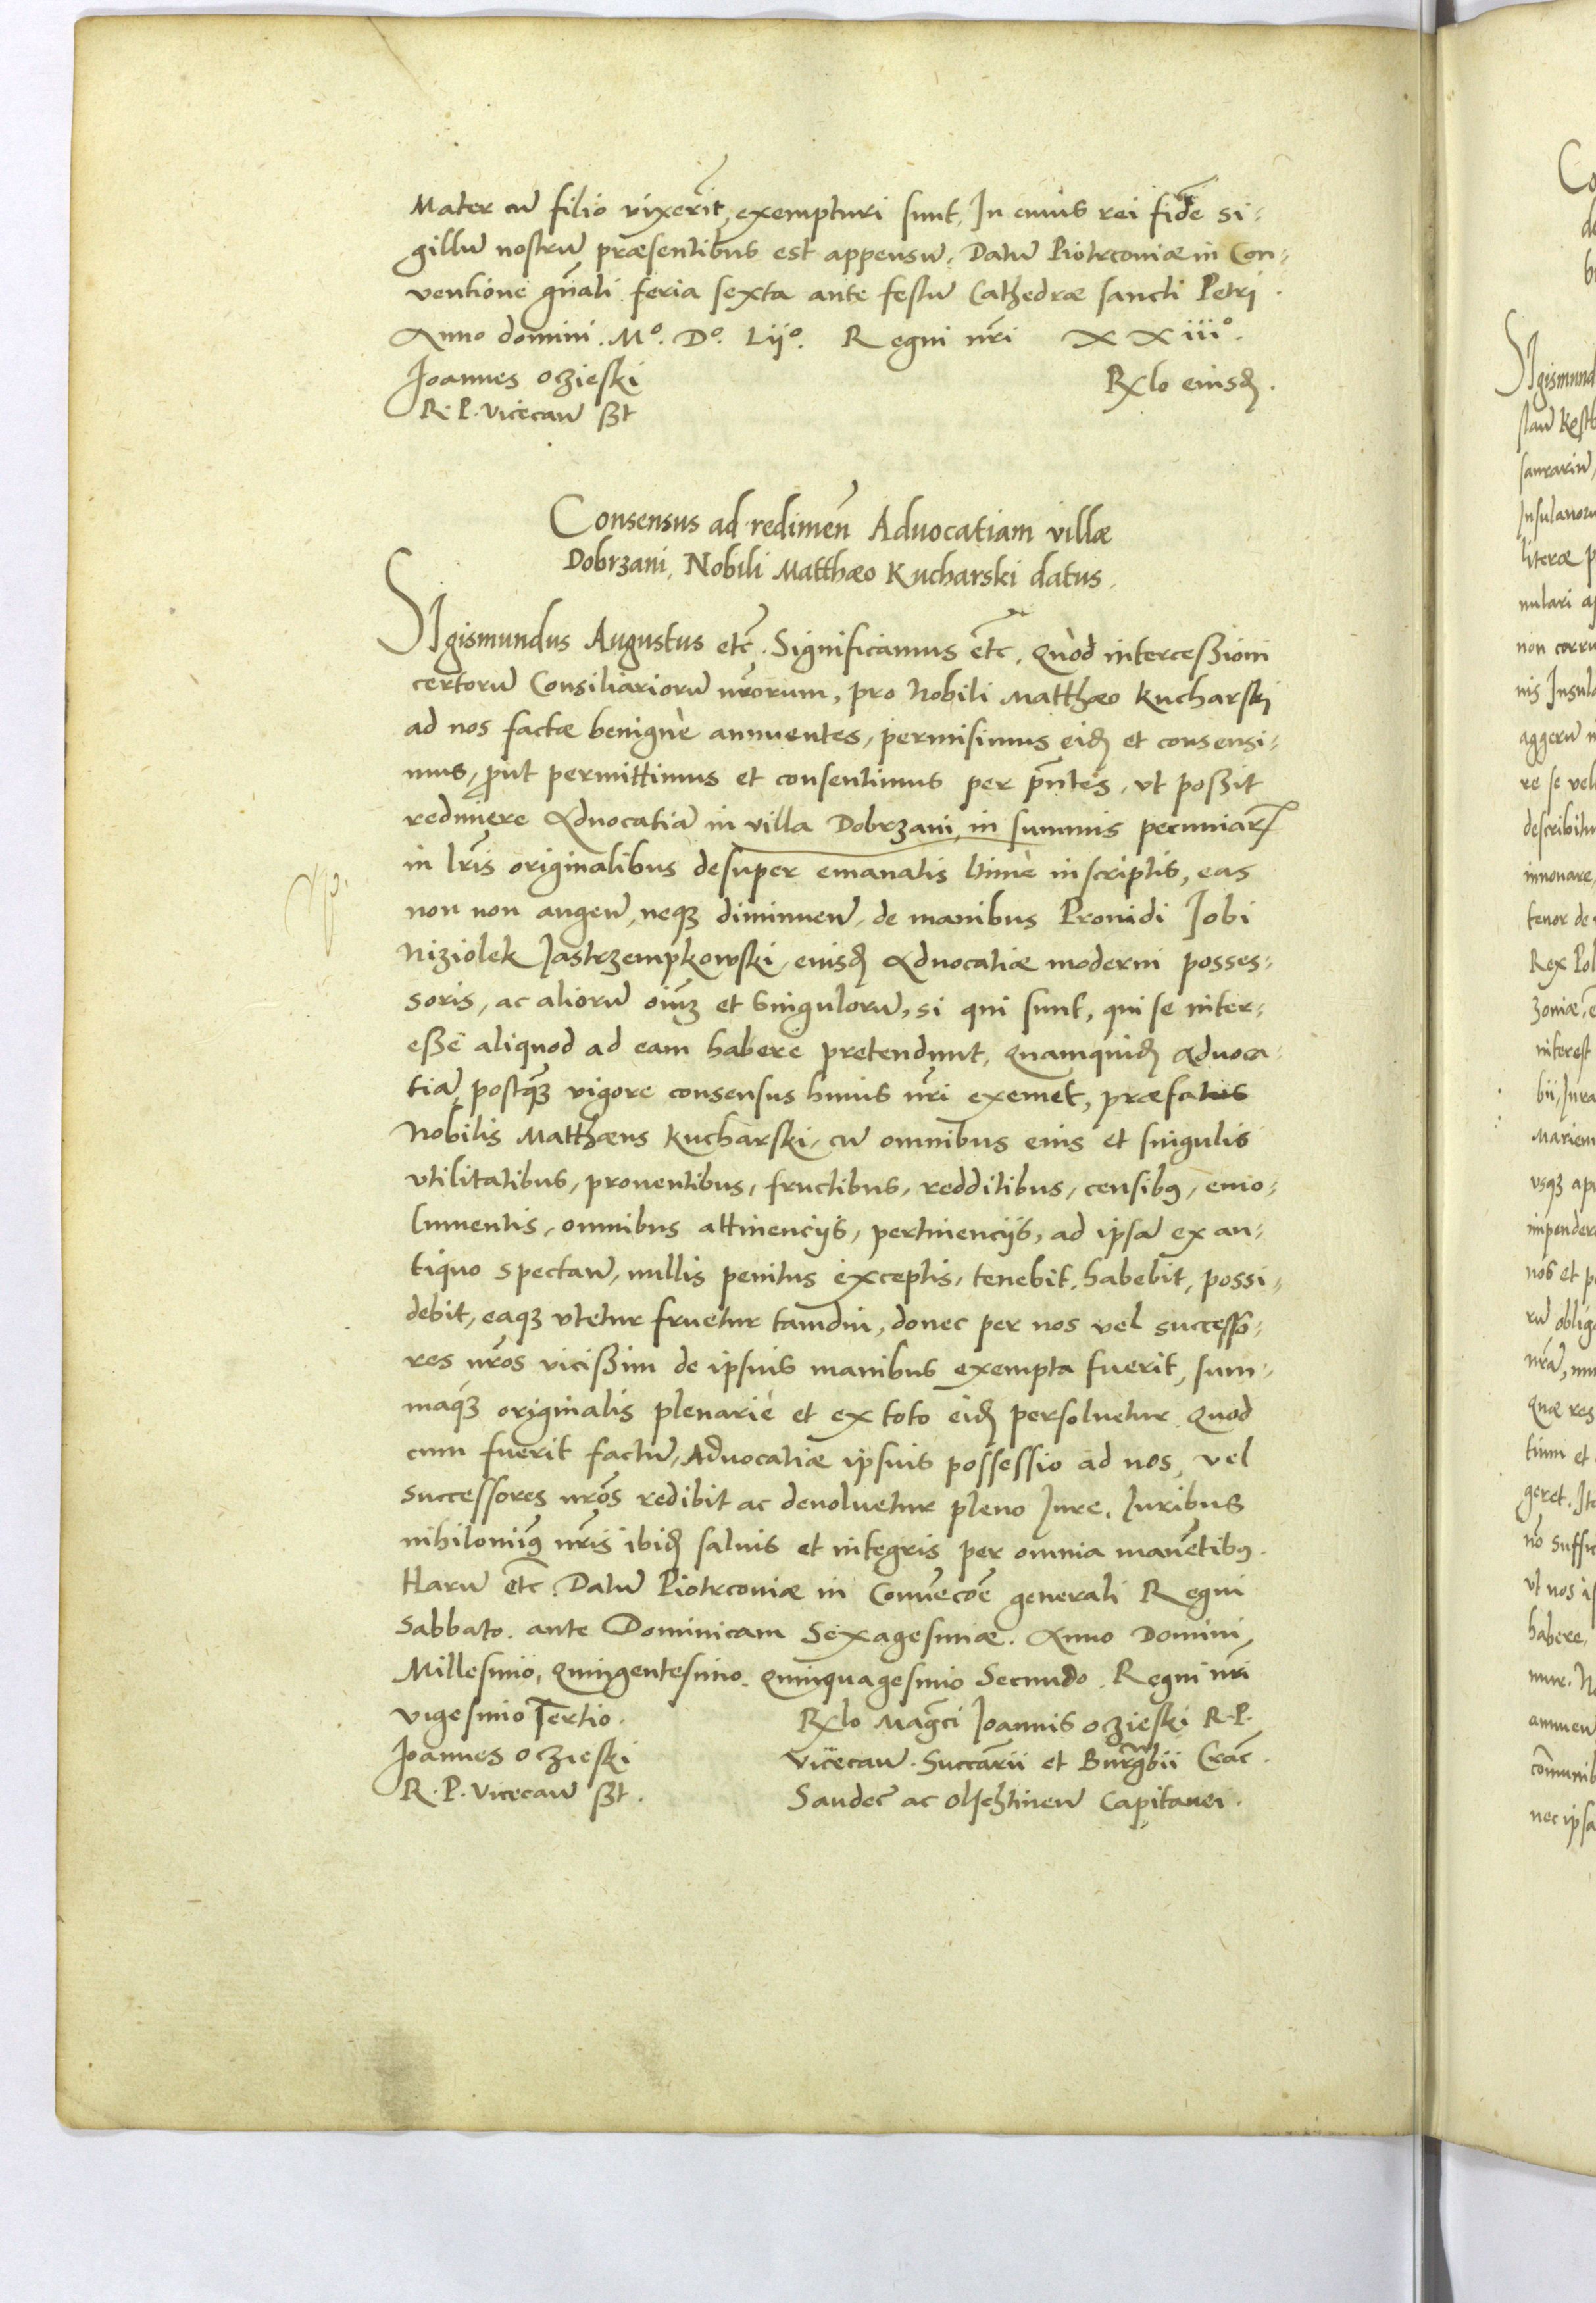 Mater cū filio vixerīt, exempturi sunt. In cuius rei fidē si-
gillū nostrū præsentibus est appensū. Datū Piotrconiæ in Con-
ventione gn̄ali feria sexta ante festū Cathedræ sancti Petri.
Anno domini. Mº. Dº. Lijº. Regni nr̄i XXiiiº.
Joannes Oczieski
Rxlo eiusdꝫ.
R. P. Vicecan̄ ßt
Consensus ad redimen̄ Advocatiam villæ
Dobrzani, Nobili Matthæo Kucharski datus.
SIgismundus Augustus etc̄. Significamus etc̄. Quòd intercessioni
certorū Consiliariorū nr̄orum, pro Nobili Matthæo Kucharski
ad nos factæ benignè annuentes, permisimus eidꝫ et consensi-
mus, ꝓut permittimus et consentimus per pn̄tes, vt poßit
redimere Advocatiā in villa Dobrzani, in summis pecuniarꝝ
in lr̄is originalibus desuper emanatis ltimè inscriptis, eas
non non augen̄, neqꝫ diminuen̄, de manibus Providi Jobi
Niziolek Jastrzempkowski, eiusdꝫ Advocatiæ moderni posses-
soris, ac aliorū oīuꝫ et singulorū, si qui sunt, qui se inter-
eße aliquod ad eam habere pretendunt, Quamquidꝫ Advoca-
tiā, postqꝫ vigore consensus huius nr̄i exemet, præfatus
Nobilis Matthæus Kucharski, cū omnibus eius et singulis
vtilitatibus, proventibus, fructibus, redditibus, censibꝰ, emo-
lumentis, omnibus attinencijs, pertinencijs, ad ipsā ex an-
tiquo spectan̄, nullis penitus exceptis, tenebit, habebit, possi-
debit, eaqꝫ vtetur fruetur tamdiu, donec per nos vel successo-
res nr̄os vicißim de ipsius manibus exempta fuerit, sum-
maqꝫ originalis plenariè et ex toto eidꝫ persoluetur. Quod
cum fuerit factū, Advocatiæ ipsius possessio ad nos, vel
successores nr̄os redibit ac devoluetur pleno Jure. Juribus
nihilominꝰ nr̄is ibidꝫ salvis et integris per omnia manētibꝰ.
Harū etc̄. Datū Piotrconiæ in Convēcōe generali Regni
Sabbato ante Dominicam Sexagesimæ. Anno Domini
Millesimo, Quingentesimo, quinquagesimo Secundo. Regni nr̄i
vigesimo Tertio.
Rxlo Magc̄i Joannis Oczieski R. P.
Joannes Oczieski
Vicecan̄. Succar̄ii et Burgrabii Crac̄.
R. P. Vicecan̄ ßt.
Sandec̄ ac Olschtinen̄ Capitanei.